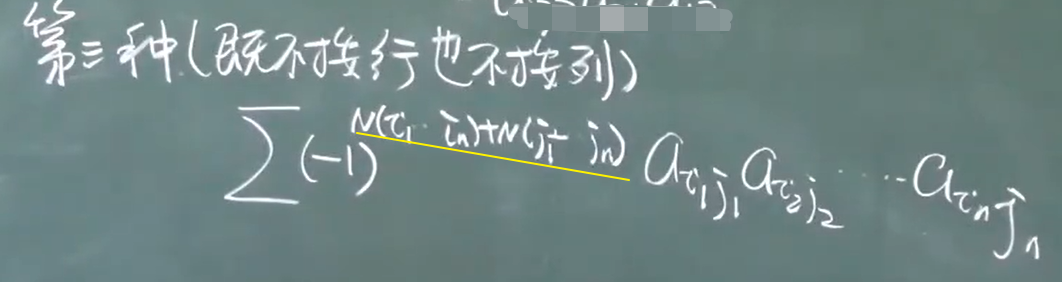 第三种(既不按行也不按列)
∑(-1)^{N(i₁ … iₙ)+N(j₁ … jₙ)} a_{i₁j₁} a_{i₂j₂} …… a_{iₙjₙ}